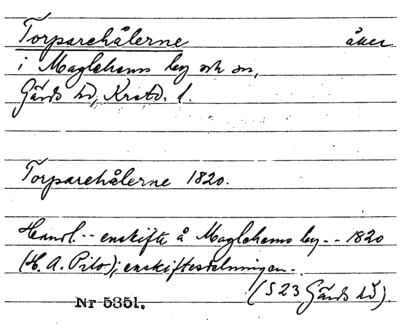 Torparehålerne åker
i Maglehems by och sn,
Gärds hd, Krstd. l.
Torparehålerne 1820.
Handl. -- enskifte å Maglehems by -- 1820
(H. A. Pilo); enskiftesdelningen -.
(S 23 Gärds hd).
Nr 5351.